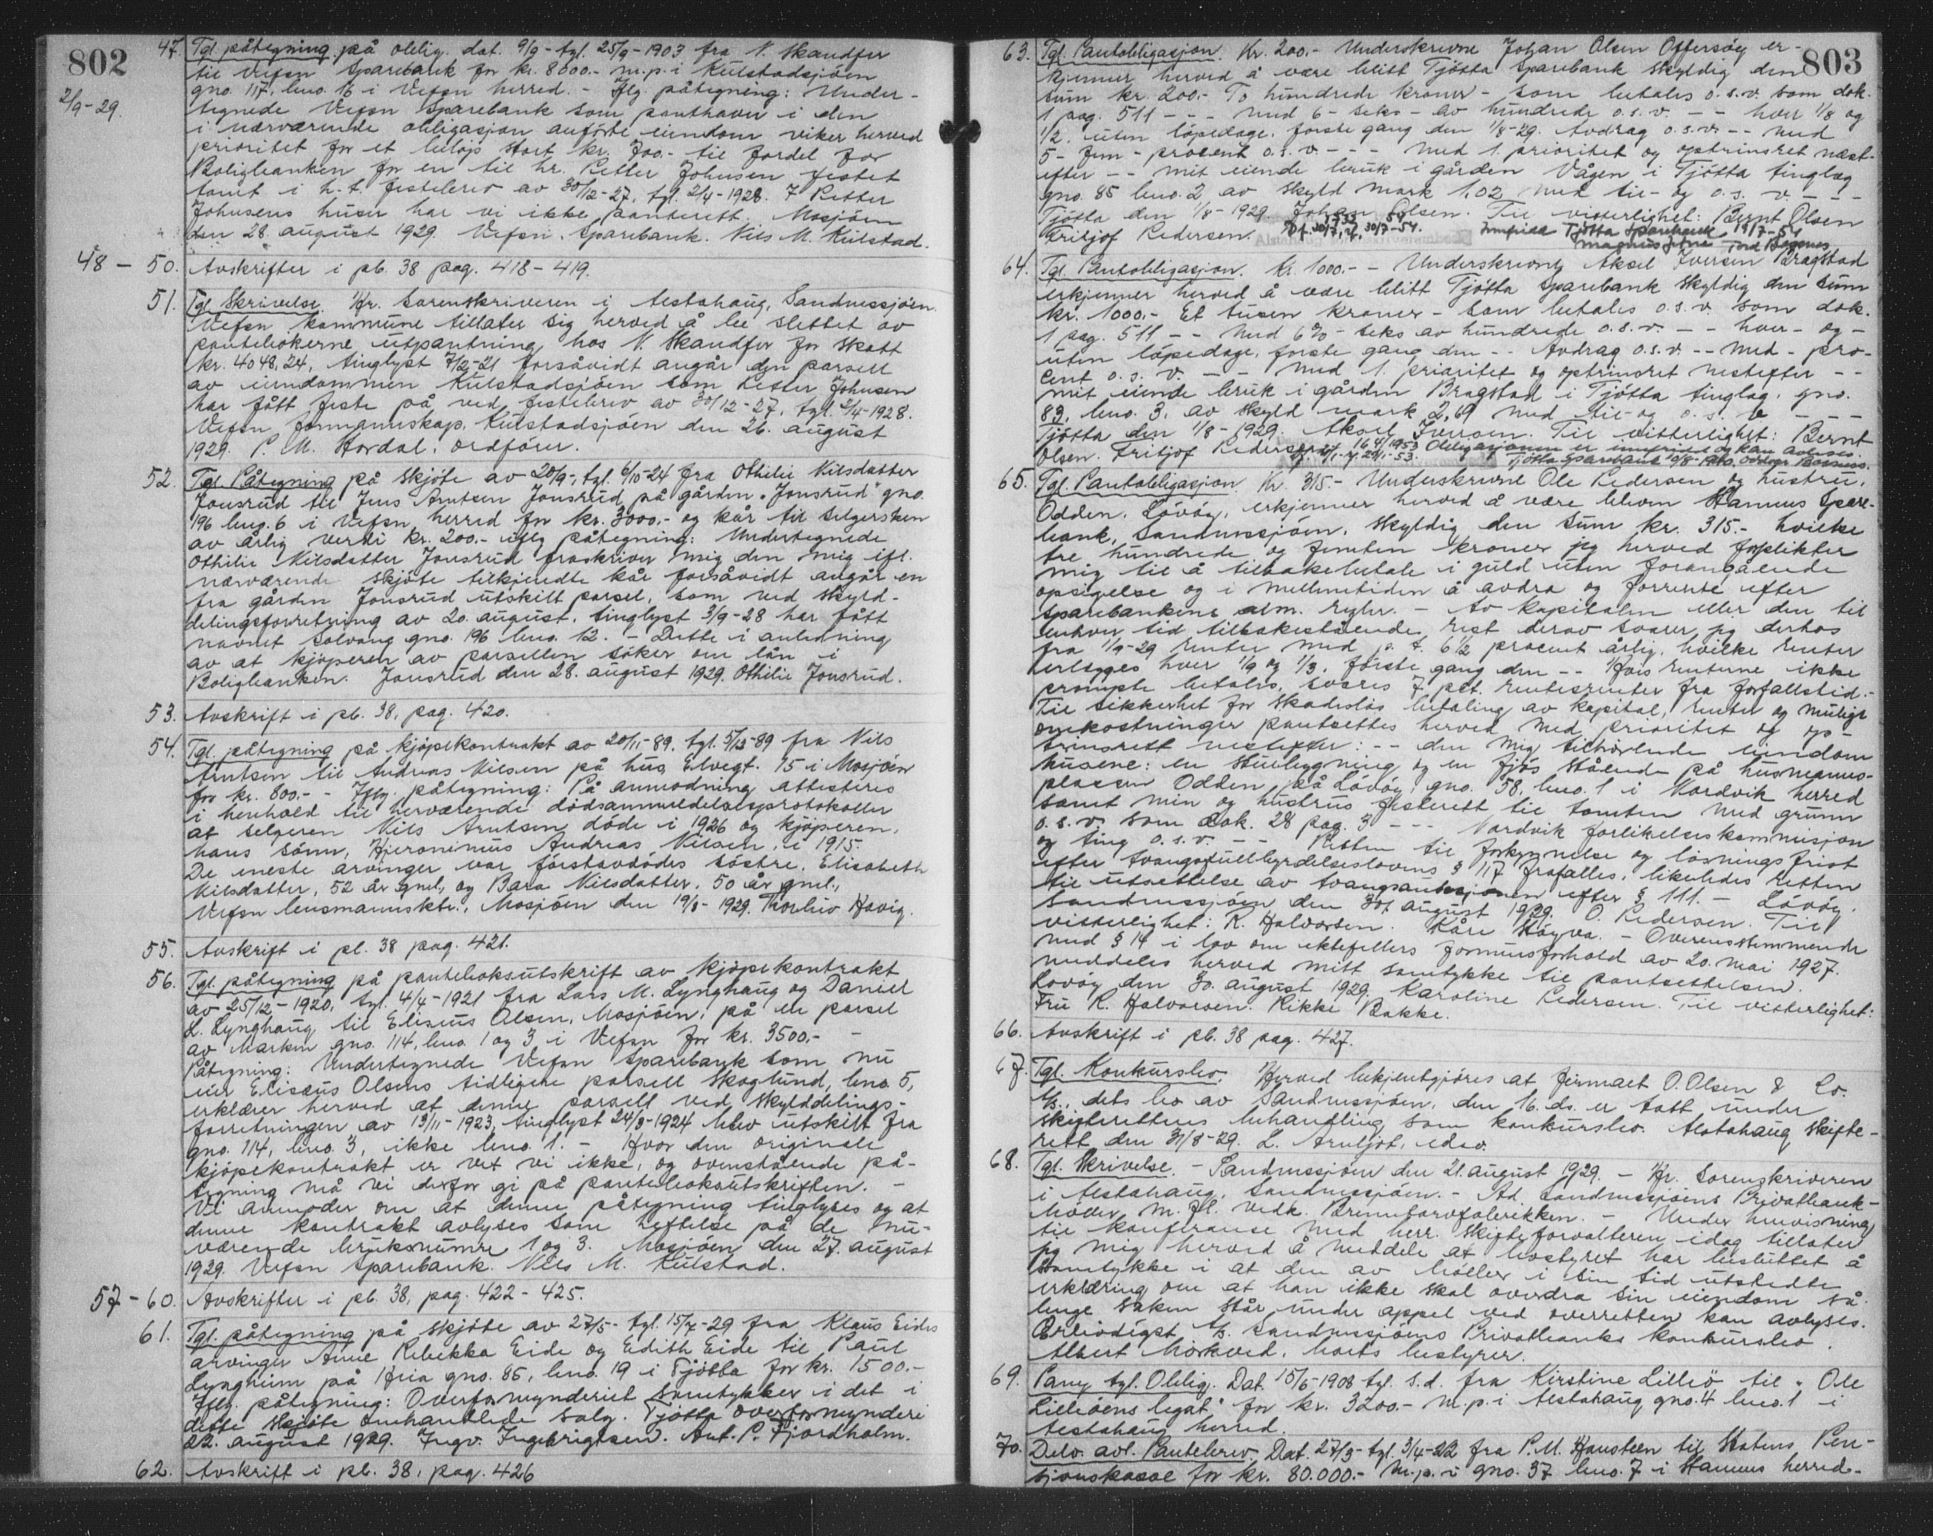 802
2/9-29.
47. Tgl. påtegning på oblig. dat. 9/9 - tgl. 25/9-1903 fra N. Skandfer
til Vefsn Sparebank for kr. 8000.- m.p. i Kulstadsjöen
gno. 117, bno. 16 i Vefsn herred. - Iflg. påtegning: Under-
tegnede Vefsn Sparebank som panthaver i den
i nærværende obligasjon anförte eiendom viker herved
prioritet for et belöp stort kr. 700.- til fordel for
Boligbanken for en til hr. Petter Johnsen festet
tomt i h.t. festebrev av 30/12-27, tgl. 2/4-1928. I Petter
Johnsens huser har vi ikke panterett. Mosjöen
den 28. august 1929. Vefsn Sparebank. Nils M. Kulstad.
48 - 50. Avskrifter i pb. 38 pag. 418-419.
51. Tgl. Skrivelse. Hr. Sorenskriveren i Alstahaug, Sandnessjöen.
Vefsn kommune tillater sig herved å be slettet av
pantebökerne utpantning hos N. Skandfer for skatt
kr. 4048,24, tinglyst 7/12-21 forsåvidt angår den parsell
av eiendommen Kulstadsjöen som Petter Johnsen
har fått feste på ved festebrev av 30/12-27, tgl. 2/4-1928.
Vefsn formannskap, Kulstadsjöen den 26. august
1929. P. M. Hordal. ordförer.
52. Tgl. Påtegning på skjöte av 20/9 - tgl. 6/10-24 fra Othilie Nilsdatter
Jonsrud til Jens Arntsen Jonsrud på gården "Jonsrud" gno.
196 bno. 6 i Vefsn herred for kr. 3000.- og kår til selgersken
av årlig verdi kr. 200.- Iflg påtegning: Undertegnede
Othilie Nilsdatter Jonsrud fraskriver mig den mig ifl.
nærværende skjöte tilkjendte kår forsåvidt angår en
fra gården Jonsrud utskilt parsel, som ved skyld-
delingsforretning av 20. august, tinglyst 3/9-28 har fått
navnet Solvang gno. 196 bno. 12. - Dette i anledning
av at kjöperen av parsellen söker om lån i
Boligbanken. Jonsrud den 28. august 1929. Othilie Jonsrud.
53. Avskrift i pb. 38, pag. 420.
54. Tgl. påtegning på kjöpekontrakt av 20/11-89, tgl. 5/12-89 fra Nils
Arntsen til Andreas Nilsen på hus Elvegt. 15 i Mosjöen
for kr. 800.- - Iflg. påtegning: På anmodning attesteres
i henhold til herværende dödsanmeldelsesprotokoller
at selgeren Nils Arntsen döde i 1926 og kjöperen,
hans sönn, Hjeronimus Andreas Nilsen, i 1915.
De eneste arvinger var förstavdödes söstre, Elisabeth
Nilsdatter, 52 år gml, og Bara Nilsdatter, 50 år gml.,
Vefsn lensmannsktr., Mosjöen den 19/8-1929. Thorleiv Havig.
55. Avskrift i pb. 38 pag. 421.
56. Tgl. påtegning på panteboksutskrift av kjöpekontrakt
av 25/12-1920, tgl. 4/4-1921 fra Lars M. Lynghaug og Daniel
L. Lynghaug til Eliseus Olsen, Mosjöen, på en parsel
av Marken gno. 114, bno. 1 og 3 i Vefsn for kr. 3500.- -
Påtegning: Undertegnede Vefsn Sparebank som nu
eier Eliseus Olsens tidligere parsell Skoglund, bno. 5,
erklærer herved at denne parsell ved skylddelings-
forretningen av 13/11-1923, tinglyst 24/3-1924 blev utskilt fra
gno. 114, bno. 3, ikke bno. 1. - Hvor den originale
kjöpekontrakt er vet vi ikke, og ovenstående på-
tegning må vi derfor gi på panteboksutskriften. -
Vi anmoder om at denne påtegning tinglyses og at
denne kontrakt avlyses som heftelse på de nu-
værende bruksnumre 1 og 3. Mosjöen den 27. august
1929. Vefsn Sparebank. Nils M. Kulstad.
57 - 60. Avskrifter i pb. 38, pag. 422 - 425.
61. Tgl. påtegning på skjöte av 27/5 - tgl. 15/7-29 fra Klaus Eides
arvinger Anne Rebekka Eide og Edith Eide til Paul
Lyngheim på Ifria gno. 85, bno. 19 i Tjötta for kr. 1500.-
Iflg. påtegning: Overformynderiet samtykker i det i
dette skjöte omhandlede salg. Tjötta overformynderi
22. august 1929. Ingv. Ingebrigtsen. Ant. P. Fjordholm.
62. Avskrift i pb. 38, pag. 426
803
63. Tgl. Pantobligasjon. Kr. 200.- Underskrevne Johan Olsen Offersöy er-
kjenner herved å være blitt Tjötta Sparebank skyldig den
sum kr. 200.- To hundrede kroner - som betales o.s.v. som dok.
1 pag. 511 - - - med 6 - seks - av hundrede o.s.v. - - hver 1/8 og
1/2. uten löpedage, förste gang den 1/8-29. Avdrag o.s.v. - - med
5 - fem - procent o.s.v. - - - med 1. prioritet og optrinsret næst-
efter - - mit eiende bruk i gården Vågen i Tjötta tinglag
gno. 85 bno. 2 av skyld mark 1,02 med til- og o.s.v. - - -
Tjötta den 1/8-1929. Johan Olsen. Til vitterlighet: Bernt Olsen
Fritjof Pedersen.
64. Tgl. Pantobligasjon. Kr. 1000.- - Underskrevne Aksel Iversen Bragstad
erkjenner herved å være blitt Tjötta Sparebank skyldig den sum
kr. 1000.- Et tusen kroner - som betales o.s.v. som dok.
1 pag. 511 - - med 6% - seks av hundrede o.s.v. - - hver - og -
uten löpedage, förste gang den - - Avdrag o.s.v. - - med - pro-
cent o.s.v. - - - med 1. prioritet og optrinsret nestefter - -
mit eiende bruk i gården Bragstad i Tjötta tinglag, gno.
83, bno. 3, av skyld mark 2,69 med til- og o.s.v. - - -
Tjötta den 1/8-1929. Aksel Iversen. Til vitterlighet: Bernt
Olsen. Fritjof Pedersen. Obligasjonen er innfridd og kan avlyses.
65. Tgl. Pantobligasjon Kr. 315.- Underskrevne Ole Pedersen og hustru,
Odden, Lövöy, erkjenner herved å være bleven Stamnes Spare-
bank, Sandnessjöen, skyldig den sum kr. 315.- hvilke
tre hundrede og femten kroner jeg herved forplikter
mig til å tilbakebetale i guld uten forangående
opsigelse og i mellemtiden å avdra og forrente efter
sparebankens alm. regler. - Av kapitalen eller den til
enhver tid tilbakestående rest derav svarer jeg derhos
fra 1/9-29 renter med p.t. 6 1/2 procent årlig, hvilke renter
erlegges hver 1/9 og 1/3, förste gang den - - Hvis renterne ikke
prompte betales, svares 7 pct. rentesrenter fra forfallstid.-
Til sikkerhet for skadeslös betaling av kapital, renter og mulige
omkostninger pantsettes herved med prioritet og op-
trinsrett nestefter: - - den mig tilhörende eiendom
husene: en stuebygning og en fjös stående på husmanns-
plassen Odden på Lövöy, gno. 58, bno. 1 i Nordvik herred
samt min og hustrus festerett til tomten med grunn
o.s.v. som dok. 28 pag. 3 - - - Nordvik forlikelseskommisjon
og ting o.s.v. - - Retten til forkynnelse og løsningsfrist
efter tvangsfullbyrdelseslovens § 117 frafalles, likeledes retten
til utsettelse av tvangsauksjonen efter § 111. - Lövöy,
Sandnessjöen den 30. august 1929. O. Pedersen. Til
vitterlighet: R. Halvorsen. Kåre Höyva. - Overensstemmende
med § 14 i lov om ektefellers formuesforhold av 20. mai 1927.
meddeles herved mitt samtykke til pantsettelsen.
Lovöy den 30. august 1929. Karoline Pedersen. Til vitterlighet:
Fru R. Halvorsen. Rikke Bakke.
66. Avskrift i pb. 38 pag. 427.
67. Tgl. Konkursbo. Herved bekjentgjöres at firmaet O. Olsen & Co.
A/S, dets bo av Sandnessjöen, den 16. ds. er tatt under
skifterettens behandling som konkursbo. Alstahaug skifte-
rett den 31/8-29. L. Arneljot, edev.
68. Tgl. Skrivelse. - Sandnessjöen den 21. august 1929. - Hr. Sorenskriveren
i Alstahaug, Sandnessjöen. - Ad. Sandnessjöens Privatbank -
Möller m.fl. vedk. Brenntorvfabrikken. - Under henvisning
til konferanse med herr. skifteforvalteren idag tillater
jeg mig herved å meddele at bostyret har besluttet å
samtykke i at den av Möller i sin tid utstedte
erklæring om at han ikke skal overdra sin eiendom så
lenge saken står under appel ved overretten kan avlyses.
Ærbödigst A/S Sandnessjöens Privatbanks konkursbo
Albert Mörkved. boets bestyrer.
69. Pany tgl. Oblig. Dat. 15/6-1908 tgl. s.d. fra Kirstine Lillö til "Ole
Lillöens legat" for kr. 3200.- m.p. i Alstahaug gno. 4 bno. 1 i
Alstahaug herred.
70. Delv. avl. Pantebrev, Dat. 27/3 - tgl. 3/4-22 fra P. M. Hansteen til Statens Pen-
sjonskasse for kr. 80.000.- m.p. i gno. 37 bno. 7 i Stamnes herred.